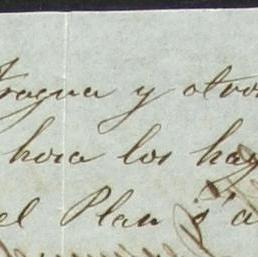 fragua y otros
hora los hay
el Plan ó a